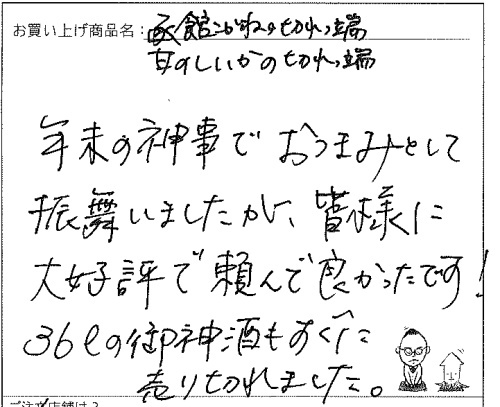 お買い上げ商品名：函館こがねの切れっ端
甘のしいかの切れっ端
年末の神事でおつまみとして
振舞いましたが、皆様に
大好評で頼んで良かったです！
36ℓの御神酒もすぐに
売り切れました。